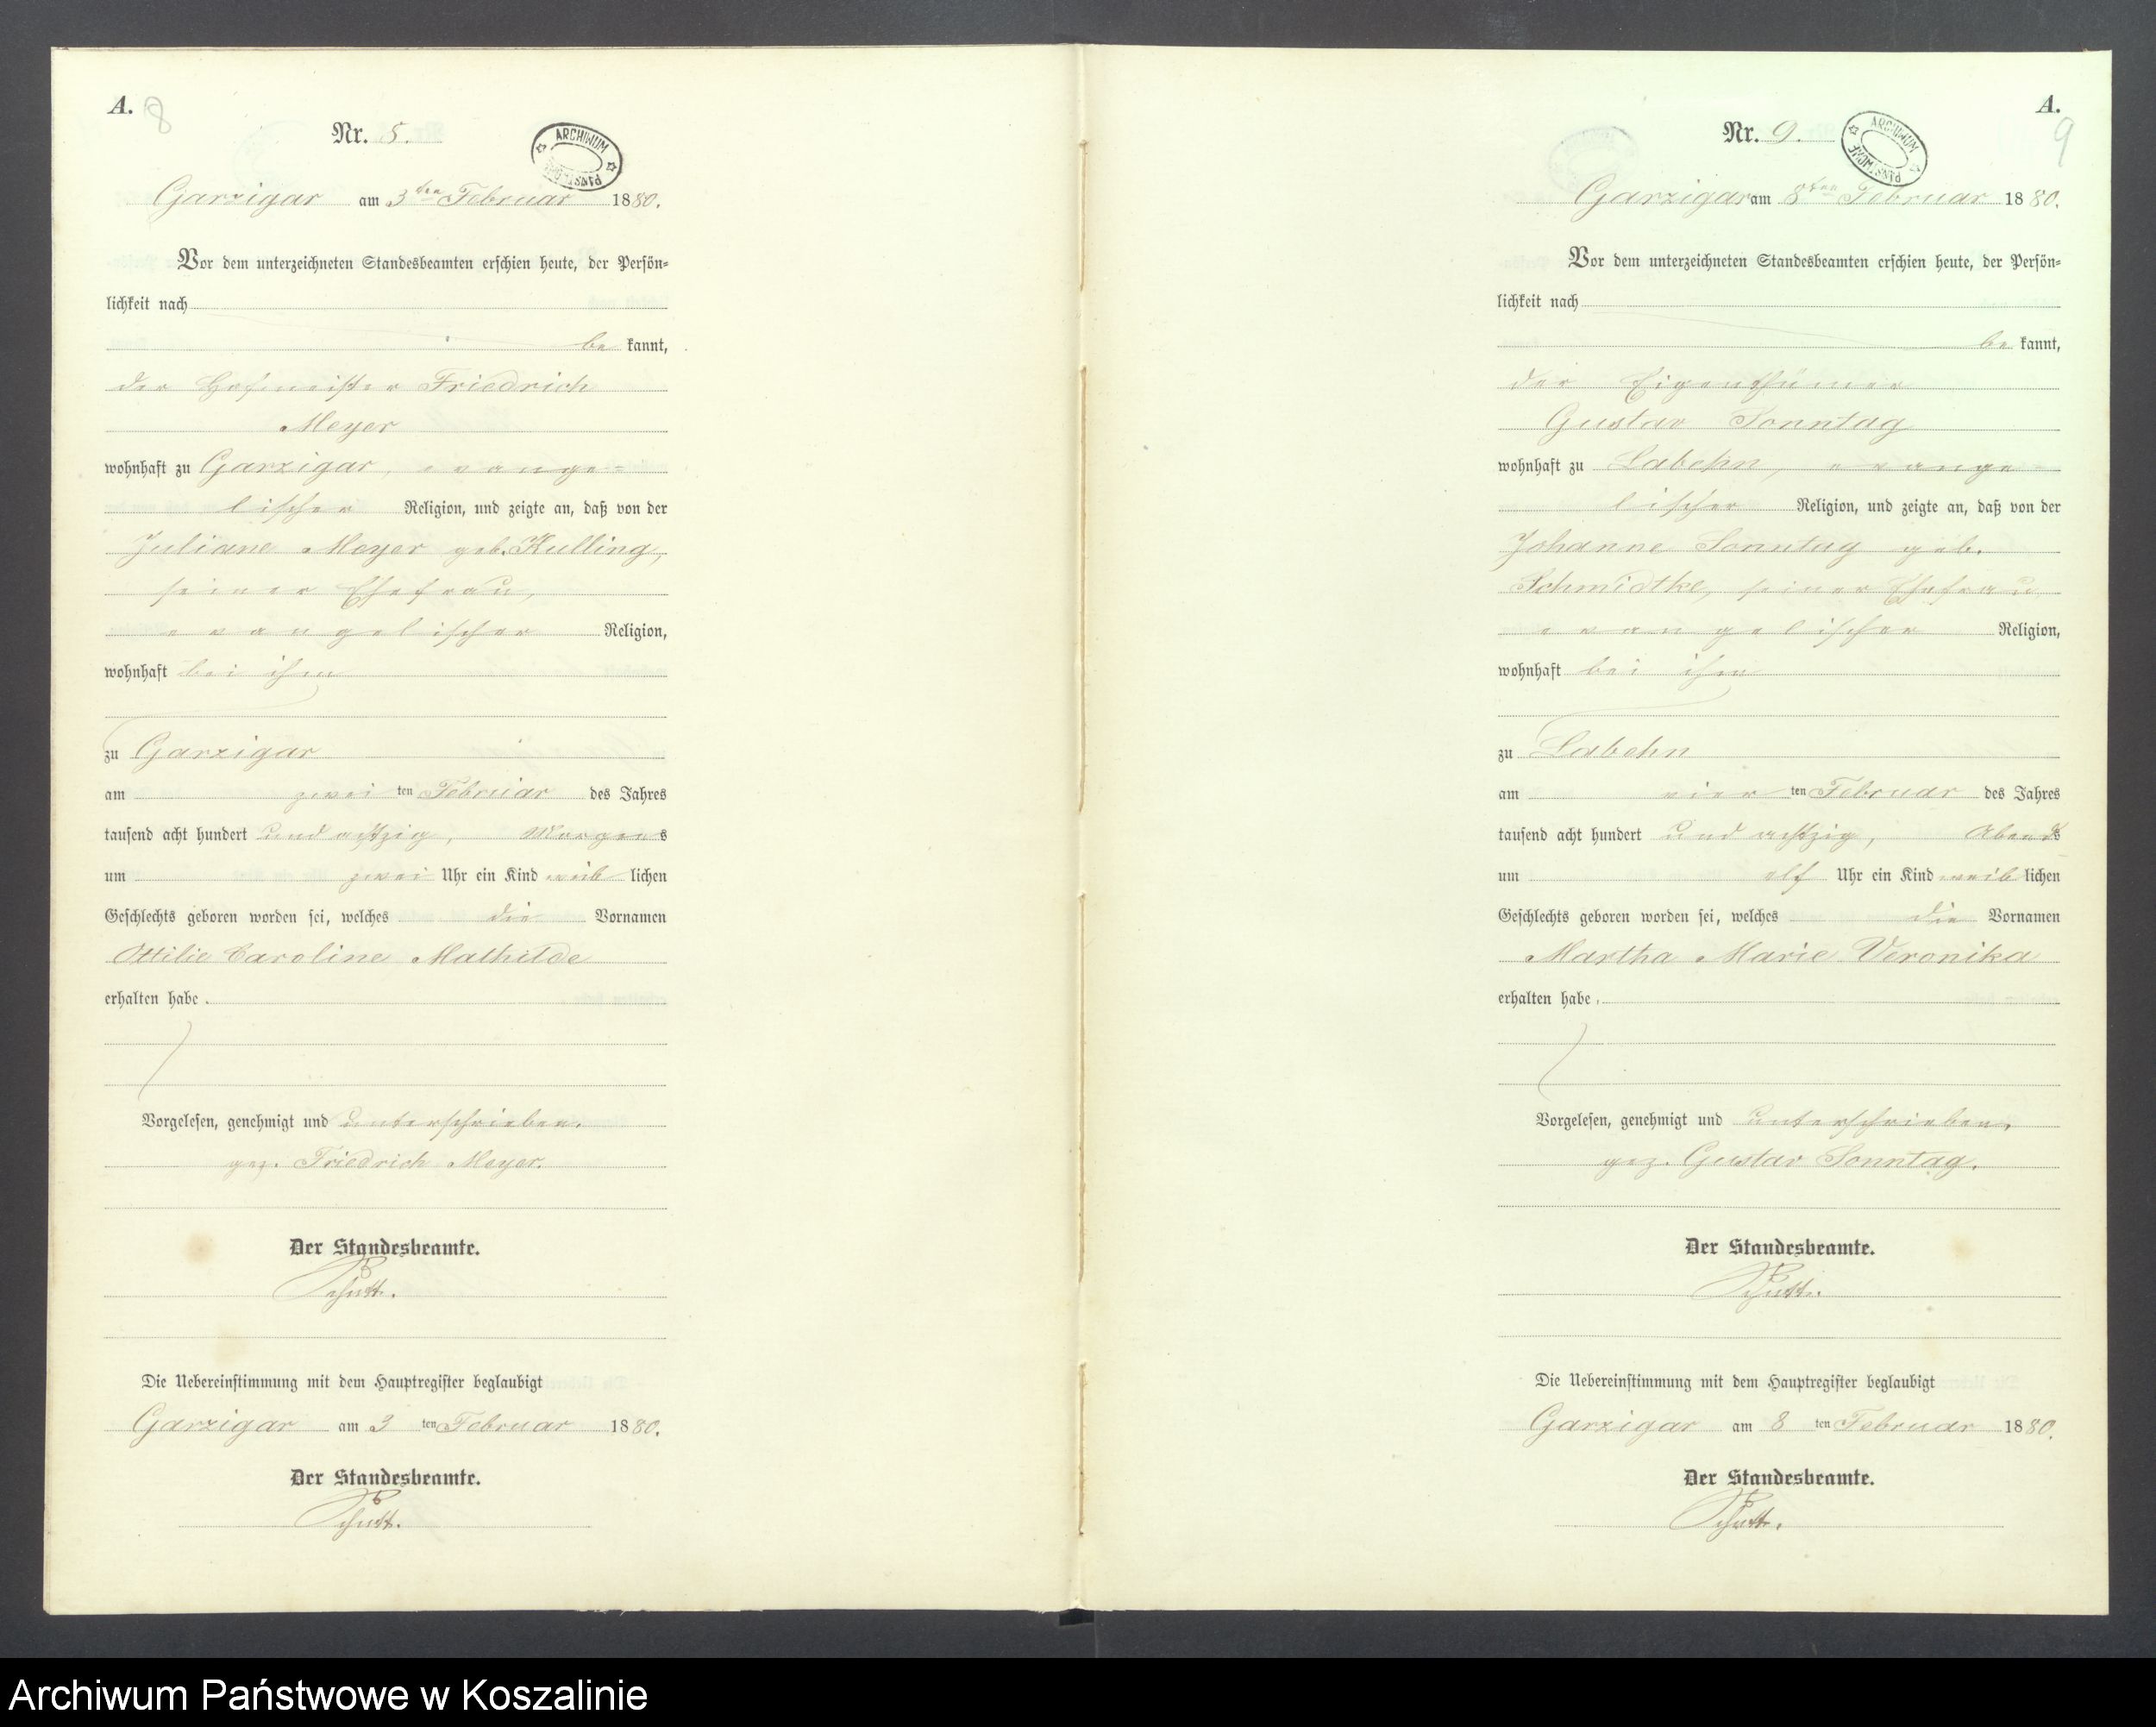 A. 8
Nr. 5.
ARCHIWUM
Garzigar am 3ten Februar 1880.
Vor dem unterzeichneten Standesbeamten erschien heute, der Persön-
lichkeit nach
be kannt,
der Hofmeister Friedrich
Meyer
wohnhaft zu Garzigar, evange-
lischer Religion, und zeigte an, daß von der
Juliane Meyer geb. Kulling,
seiner Ehefrau,
evangelischer Religion,
wohnhaft bei ihm
zu Garzigar
am zwei ten Februar des Jahres
tausend acht hundert und achtzig, Morgens
um zwei Uhr ein Kind weib lichen
Geschlechts geboren worden sei, welches die Vornamen
Ottilie Caroline Mathilde
erhalten habe.
Vorgelesen, genehmigt und unterschrieben.
gez. Friedrich Meyer.
Der Standesbeamte.
Die Uebereinstimmung mit dem Hauptregister beglaubigt
Garzigar am 3 ten Februar 1880.
Der Standesbeamte.
A.
9
Nr. 9.
ARCHIWUM
Garzigar am 8ten Februar 1880.
Vor dem unterzeichneten Standesbeamten erschien heute, der Persön-
lichkeit nach
be kannt,
der Eigenthümer
Gustav Sonntag
wohnhaft zu Labehn, evange-
lischer Religion, und zeigte an, daß von der
Johanne Sonntag geb.
Schmidtke, seiner Ehefrau
evangelischer Religion,
wohnhaft bei ihm
zu Labehn
am vier ten Februar des Jahres
tausend acht hundert und achtzig, Abends
um elf Uhr ein Kind weib lichen
Geschlechts geboren worden sei, welches die Vornamen
Martha Marie Veronika
erhalten habe.
Vorgelesen, genehmigt und unterschrieben.
gez. Gustav Sonntag.
Der Standesbeamte.
Die Uebereinstimmung mit dem Hauptregister beglaubigt
Garzigar am 8 ten Februar 1880.
Der Standesbeamte.
Archiwum Państwowe w Koszalinie